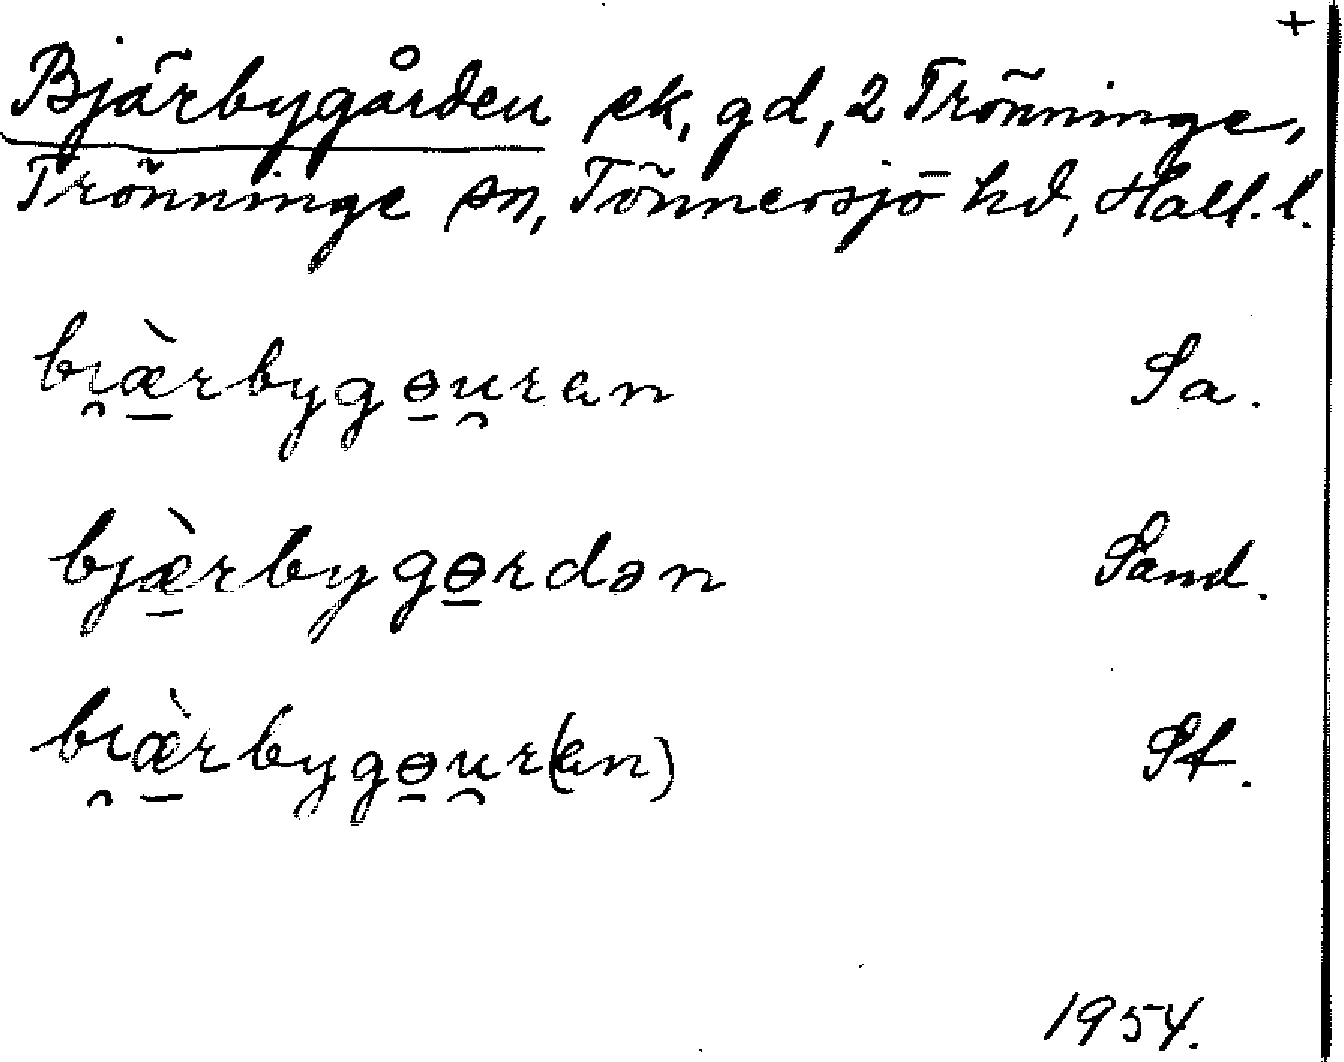 +
Bjärbygården ek, gd, 2 Trönninge,
Trönninge sn, Tönnersjö hd, Hall. l.
bi̯æ̱̀rbygɵ̱u̯ran Sa.
bjæ̱̀rbygɵ̱rdən Sand.
bi̯æ̱̀rbygɵ̱u̯r(an) St.
1954.